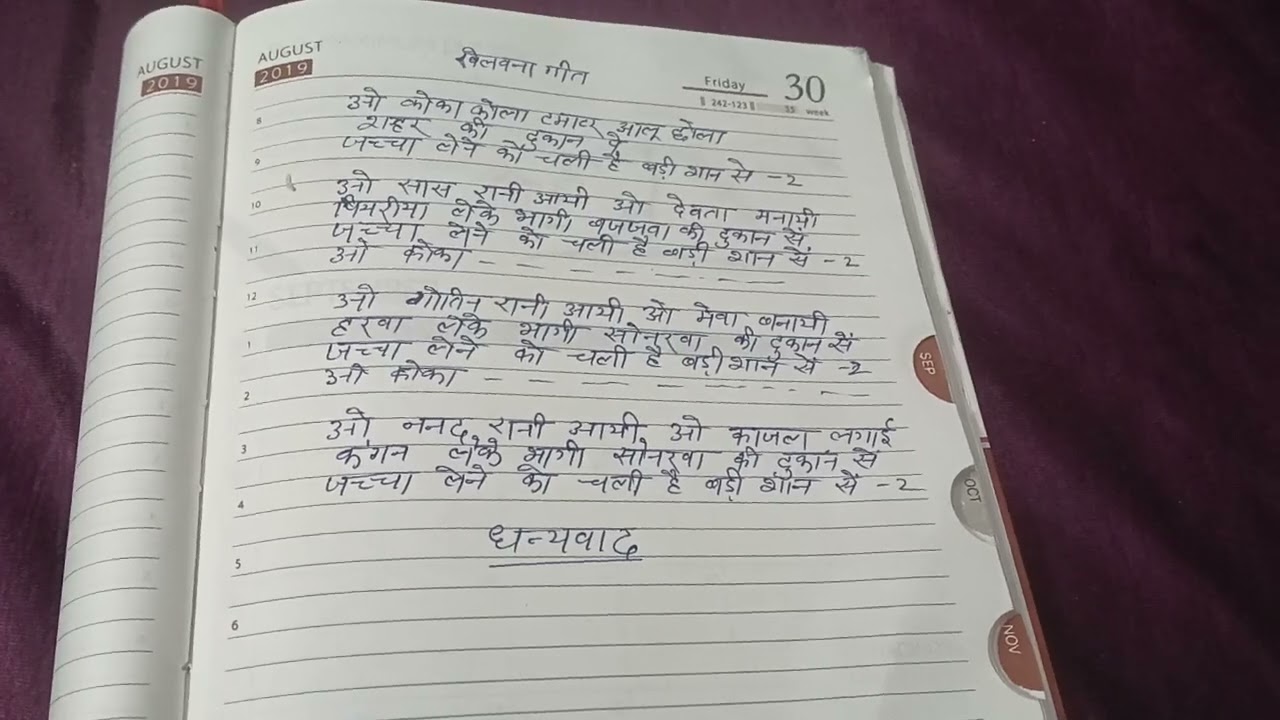 AUGUST
2019
AUGUST
2019
खिलवना गीत
Friday
30
242-123
35 week
ओ कोका कोला टमाटर आलू छोला
शहर की दुकान पे
जच्चा लेने को चली है बड़ी शान से -2
ओ सास रानी आयी ओ देवता मनायी
पियरीया लेके भागी बजजवा की दुकान से
जच्चा लेने को चली है बड़ी शान से -2
ओ कोका - - - - - - - -
ओ गोतिन रानी आयी ओ मेवा बनायी
हरवा लेके भागी सोनरवा की दुकान से
जच्चा लेने को चली है बड़ी शान से -2
ओ कोका - - - - - - - -
ओ ननद रानी आयी ओ काजल लगाई
कंगन लेके भागी सोनरवा की दुकान से
जच्चा लेने को चली है बड़ी शान से -2
धन्यवाद
8
9
10
11
12
1
2
3
4
5
6
SEP
OCT
NOV